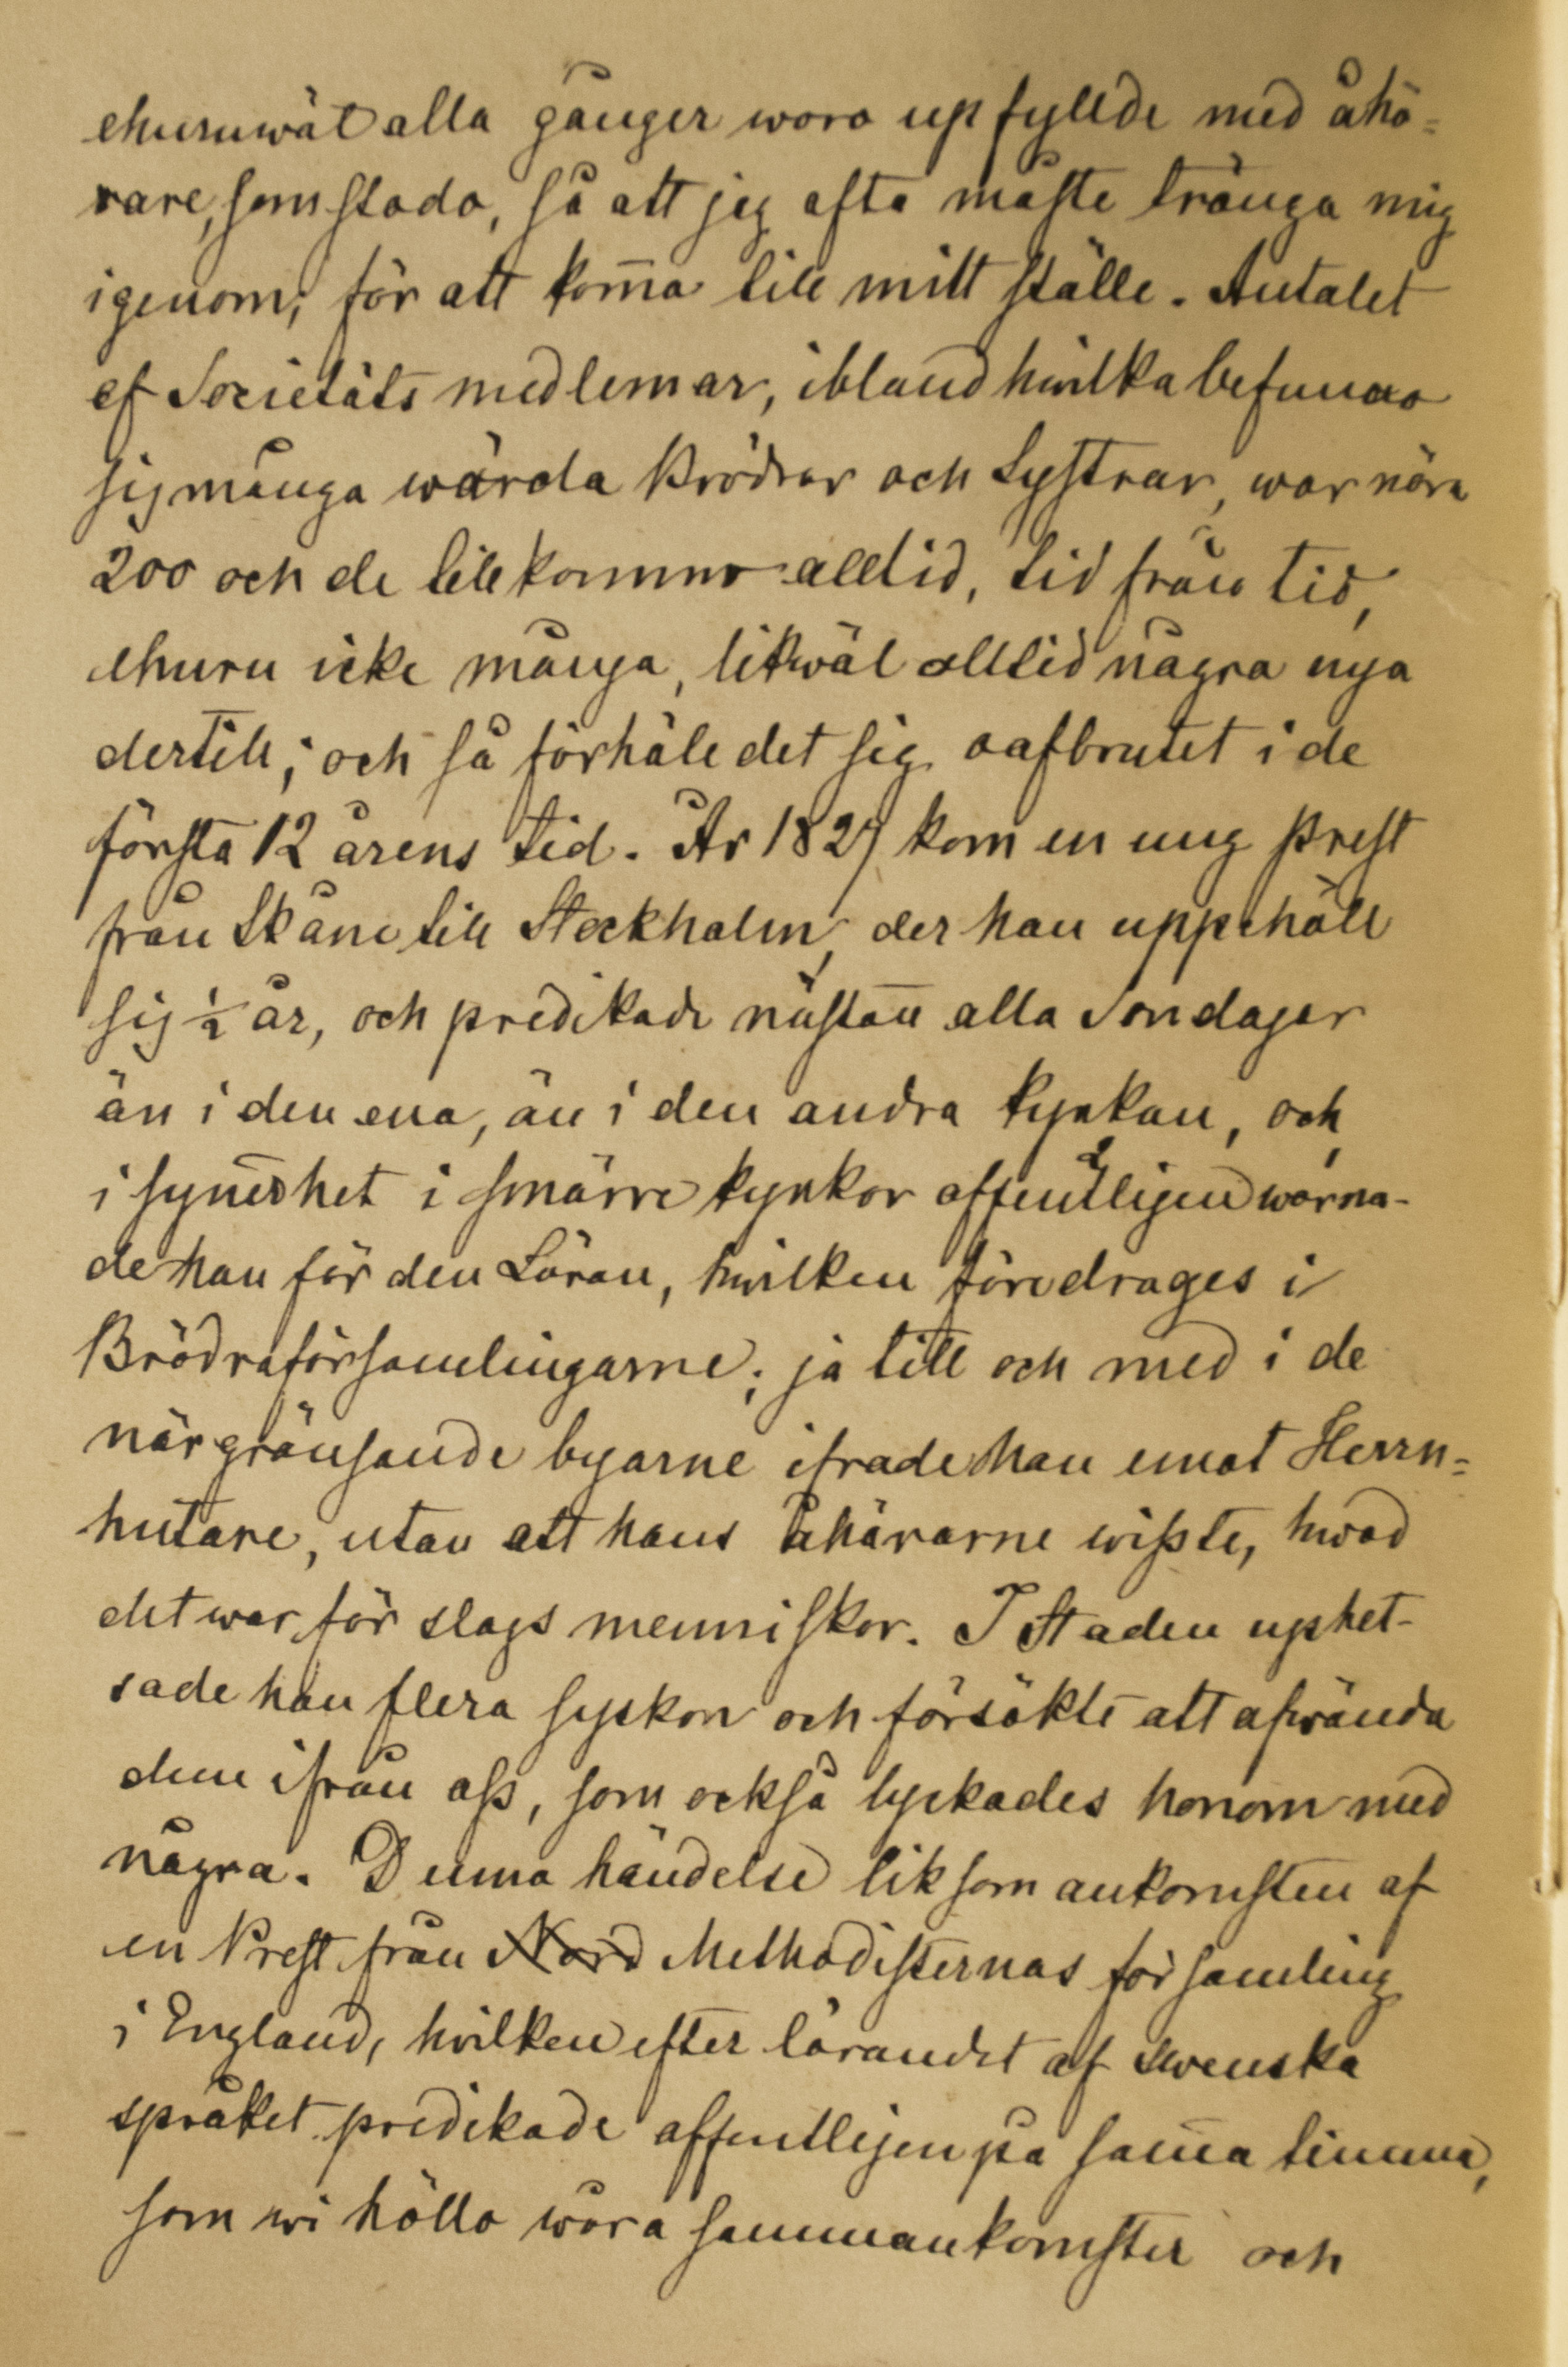 ehuruwäl alla gånger woro upfyllde med åhö=
rare, som stodo, så att jeg ofta måste tränga mig
igenom, för att kom̄a till mitt ställe. Antalet
af Societäts medlemar, ibland hwilka befunno
sig många wärda Bröder och Systrar, war nära
200 och de tillkommo alltid, tid från tid,
ehuru icke många, likwäl alltid några nya
dertill; och så förhöll det sig oafbrutet i de
första 12 årens tid. År 1827 kom en ung Prest
från Skåne till Stockholm, der han uppehöll
sig ½ år, och predikade nästan̄ alla Söndagar
än i den ena, än i den andra kyrkan, och
i syn̄erhet i smärre kyrkor offentligen warna-
de han för den Läran, hwilken föredrages i
Brödraförsamlingarne; ja till och med i de
närgränsande byarne ifrade han emot Herrn=
hutare, utan att hans åhörarne wißte, hwad
det war för slags menniskor. I Staden uphet-
sade han flera syskon och försökte att afwända
dem ifrån oß, som också lyckades honom med
några. Denna händelse liksom ankomsten af
en Prest från Nord Methodisternas församling
i England, hvilken efter lärandet af Swenska
språket predikade offentligen på sam̄a timma,
som wi höllo wåra sammankomster och